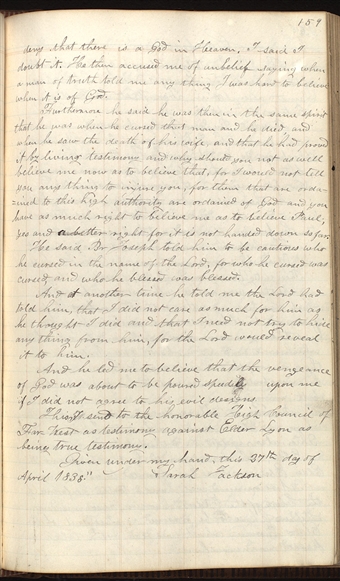 159
deny that there is a God in Heaven, I said I
doubt it. He then accused me of unbelief saying when
a man of truth told me any thing I was hard to believe
when it is of God.
Furthermore he said he was then in the same spirit
that he was when he cursed that man and he died, and
when he saw the death of his wife, and that he had proved
it by living testimony and why should you not as well
believe me now as to believe that, for I would not tell
you any thing to injure you, for them that are orda-
=ined to this high authority are ordained of God and you
have as much right to believe me as to believe Paul,
yes and a better right for it is not handed down so far.
He said Br Joseph told him to be cautious who
he cursed in the name of the Lord, for who he cursed was
cursed, and who he blessed was blessed.
And at another time he told me the Lord had
told him, that I did not care as much for him as
he thought I did and that I need not try to hide
any thing from him, for the Lord would reveal
it to him.
And he led me to believe that the vengeance
of God was about to be poured speedily upon me
if I did not agree to his evil designs.
sent to the honorable High Council of
Far West as testimony against Elder Lyon as
being true testimony.
Given under my hand, this 27th day of
April 1838." Sarah Jackson